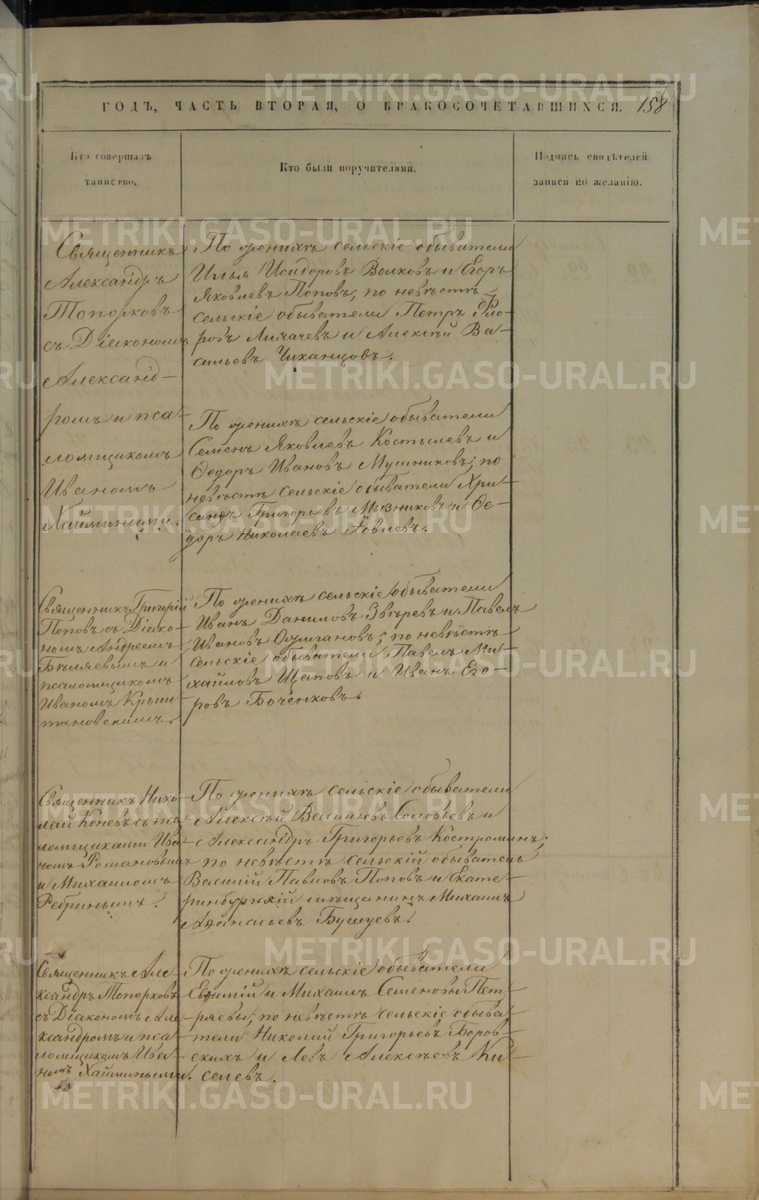 ГОДЪ, ЧАСТЬ ВТОРАЯ, О БРАКОСОЧЕТАВШИХСЯ. 158
Кто совершалъ
таинство.
Кто были поручителями.
Подпись свидѣтелей
записи по желанію.
Священникъ
Александръ
Топорковъ
съ Діакономъ
Александ-
ромъ и пса-
ломщикомъ
Иваномъ
Хаймиными.
По женихѣ сельскіе обыватели
Илья Исидоровъ Волковъ и Егоръ
Яковлевъ Поповъ; по невѣстѣ
сельскіе обыватели Петръ Фло-
ровъ Лихачевъ и Алексѣй Ва-
сильевъ Чиханцовъ.
По женихѣ сельскіе обыватели
Семенъ Яковлевъ Костылевъ и
Ѳедоръ Ивановъ Мушниковъ; по
невѣстѣ сельскіе обыватели Хри-
санфъ Григорьевъ Мызниковъ и Ѳе-
доръ Николаевъ
Священникъ Григорій
Поповъ съ Діако-
номъ Андреемъ
Бѣляевымъ и
псаломщикомъ
Иваномъ Крыш-
тановскимъ.
По женихѣ сельскіе обыватели
Иванъ Даниловъ Звѣревъ и Павелъ
Ивановъ по невѣстѣ
сельскіе обыватели Павелъ Ми-
хайловъ Щаповъ и Иванъ Его-
ровъ Боченковъ.
Священникъ Нико-
лай Коневъ съ пса-
ломщиками Ива-
номъ Романовымъ
и Михаиломъ
Ребринымъ.
По женихѣ сельскіе обыватели
Алексѣй Васильевъ Соловьевъ и
Александръ Григорьевъ Костроминъ;
по невѣстѣ сельскій обыватель
Василій Павловъ Поповъ и Екате-
ринбургскій мѣщанинъ Михаилъ
Аѳанасьевъ Бушуевъ.
Священникъ Але-
ксандръ Топорковъ
съ Діакономъ Але-
ксандромъ и пса-
ломщикомъ Ива-
номъ Хаймиными.
По женихѣ сельскіе обыватели
Евфимій и Михаилъ Семеновы Пет-
ряевы; по невѣстѣ сельскіе обыва-
тели Николай Григорьевъ Боров-
скихъ и Левъ Алексѣевъ Ки-
селевъ.
METRIKI.GASO-URAL.RU